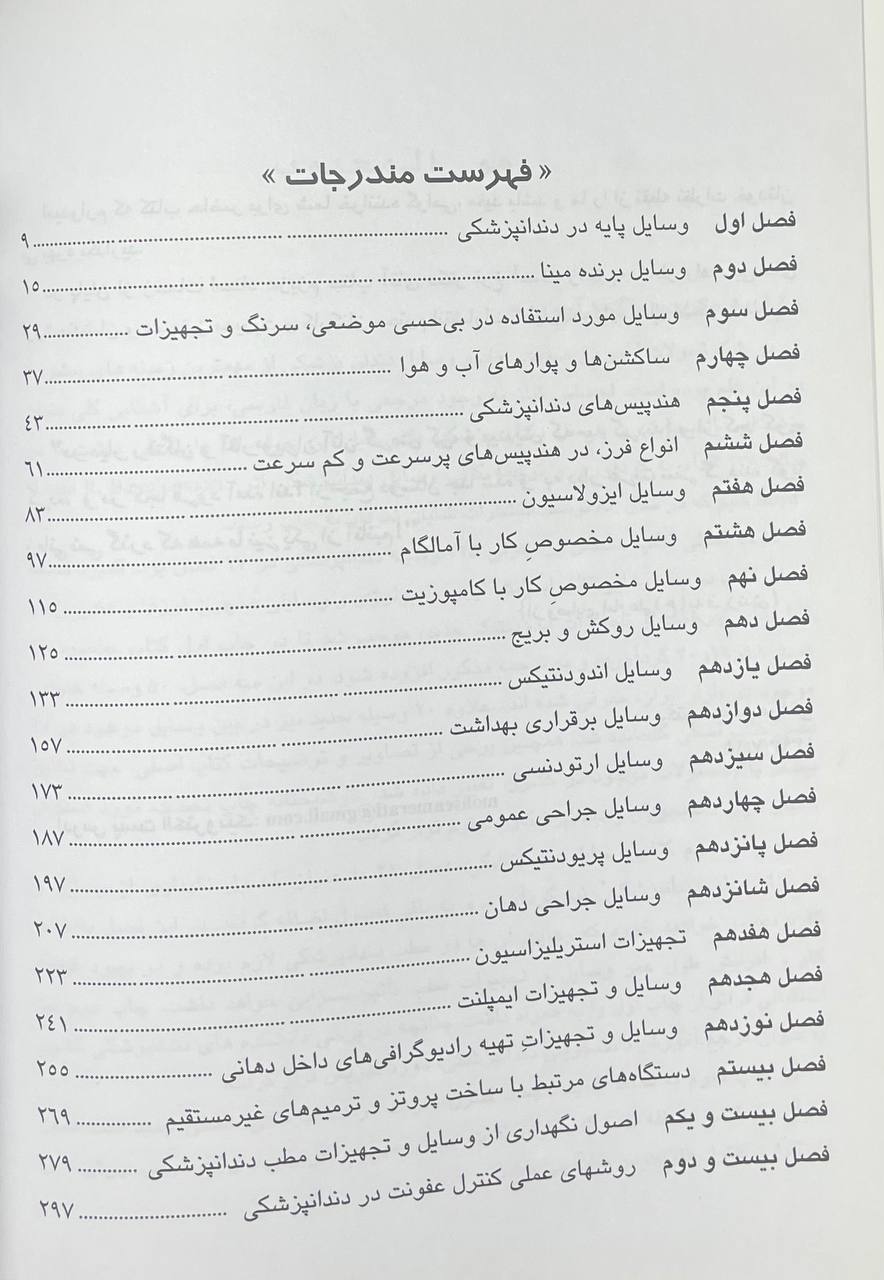 « فهرست مندرجات »
فصل اول وسایل پایه در دندانپزشکی ........ ۹
فصل دوم وسایل برنده مینا ........ ۱۵
فصل سوم وسایل مورد استفاده در بی‌حسی موضعی، سرنگ و تجهیزات ........ ۲۹
فصل چهارم ساکشن‌ها و پوارهای آب و هوا ........ ۳۷
فصل پنجم هندپیس‌های دندانپزشکی ........ ٤۳
فصل ششم انواع فرز، در هندپیس‌های پرسرعت و کم سرعت ........ ٦۱
فصل هفتم وسایل ایزولاسیون ........ ۸۳
فصل هشتم وسایل مخصوصِ کار با آمالگام ........ ۹۷
فصل نهم وسایل مخصوصِ کار با کامپوزیت ........ ۱۱۵
فصل دهم وسایل روکش و بریج ........ ۱۲۵
فصل یازدهم وسایل اندودنتیکس ........ ۱۳۳
فصل دوازدهم وسایل برقراری بهداشت ........ ۱۵۷
فصل سیزدهم وسایل ارتودنسی ........ ۱۷۳
فصل چهاردهم وسایل جراحی عمومی ........ ۱۸۷
فصل پانزدهم وسایل پریودنتیکس ........ ۱۹۷
فصل شانزدهم وسایل جراحی دهان ........ ۲۰۷
فصل هفدهم تجهیزات استریلیزاسیون ........ ۲۲۳
فصل هجدهم وسایل و تجهیزات ایمپلنت ........ ۲٤۱
فصل نوزدهم وسایل و تجهیزاتِ تهیه رادیوگرافی‌های داخل دهانی ........ ۲۵۵
فصل بیستم دستگاه‌های مرتبط با ساخت پروتز و ترمیم‌های غیرمستقیم ........ ۲٦۹
فصل بیست و یکم اصول نگهداری از وسایل و تجهیزات مطب دندانپزشکی ........ ۲۷۹
فصل بیست و دوم روشهای عملی کنترل عفونت در دندانپزشکی ........ ۲۹۷